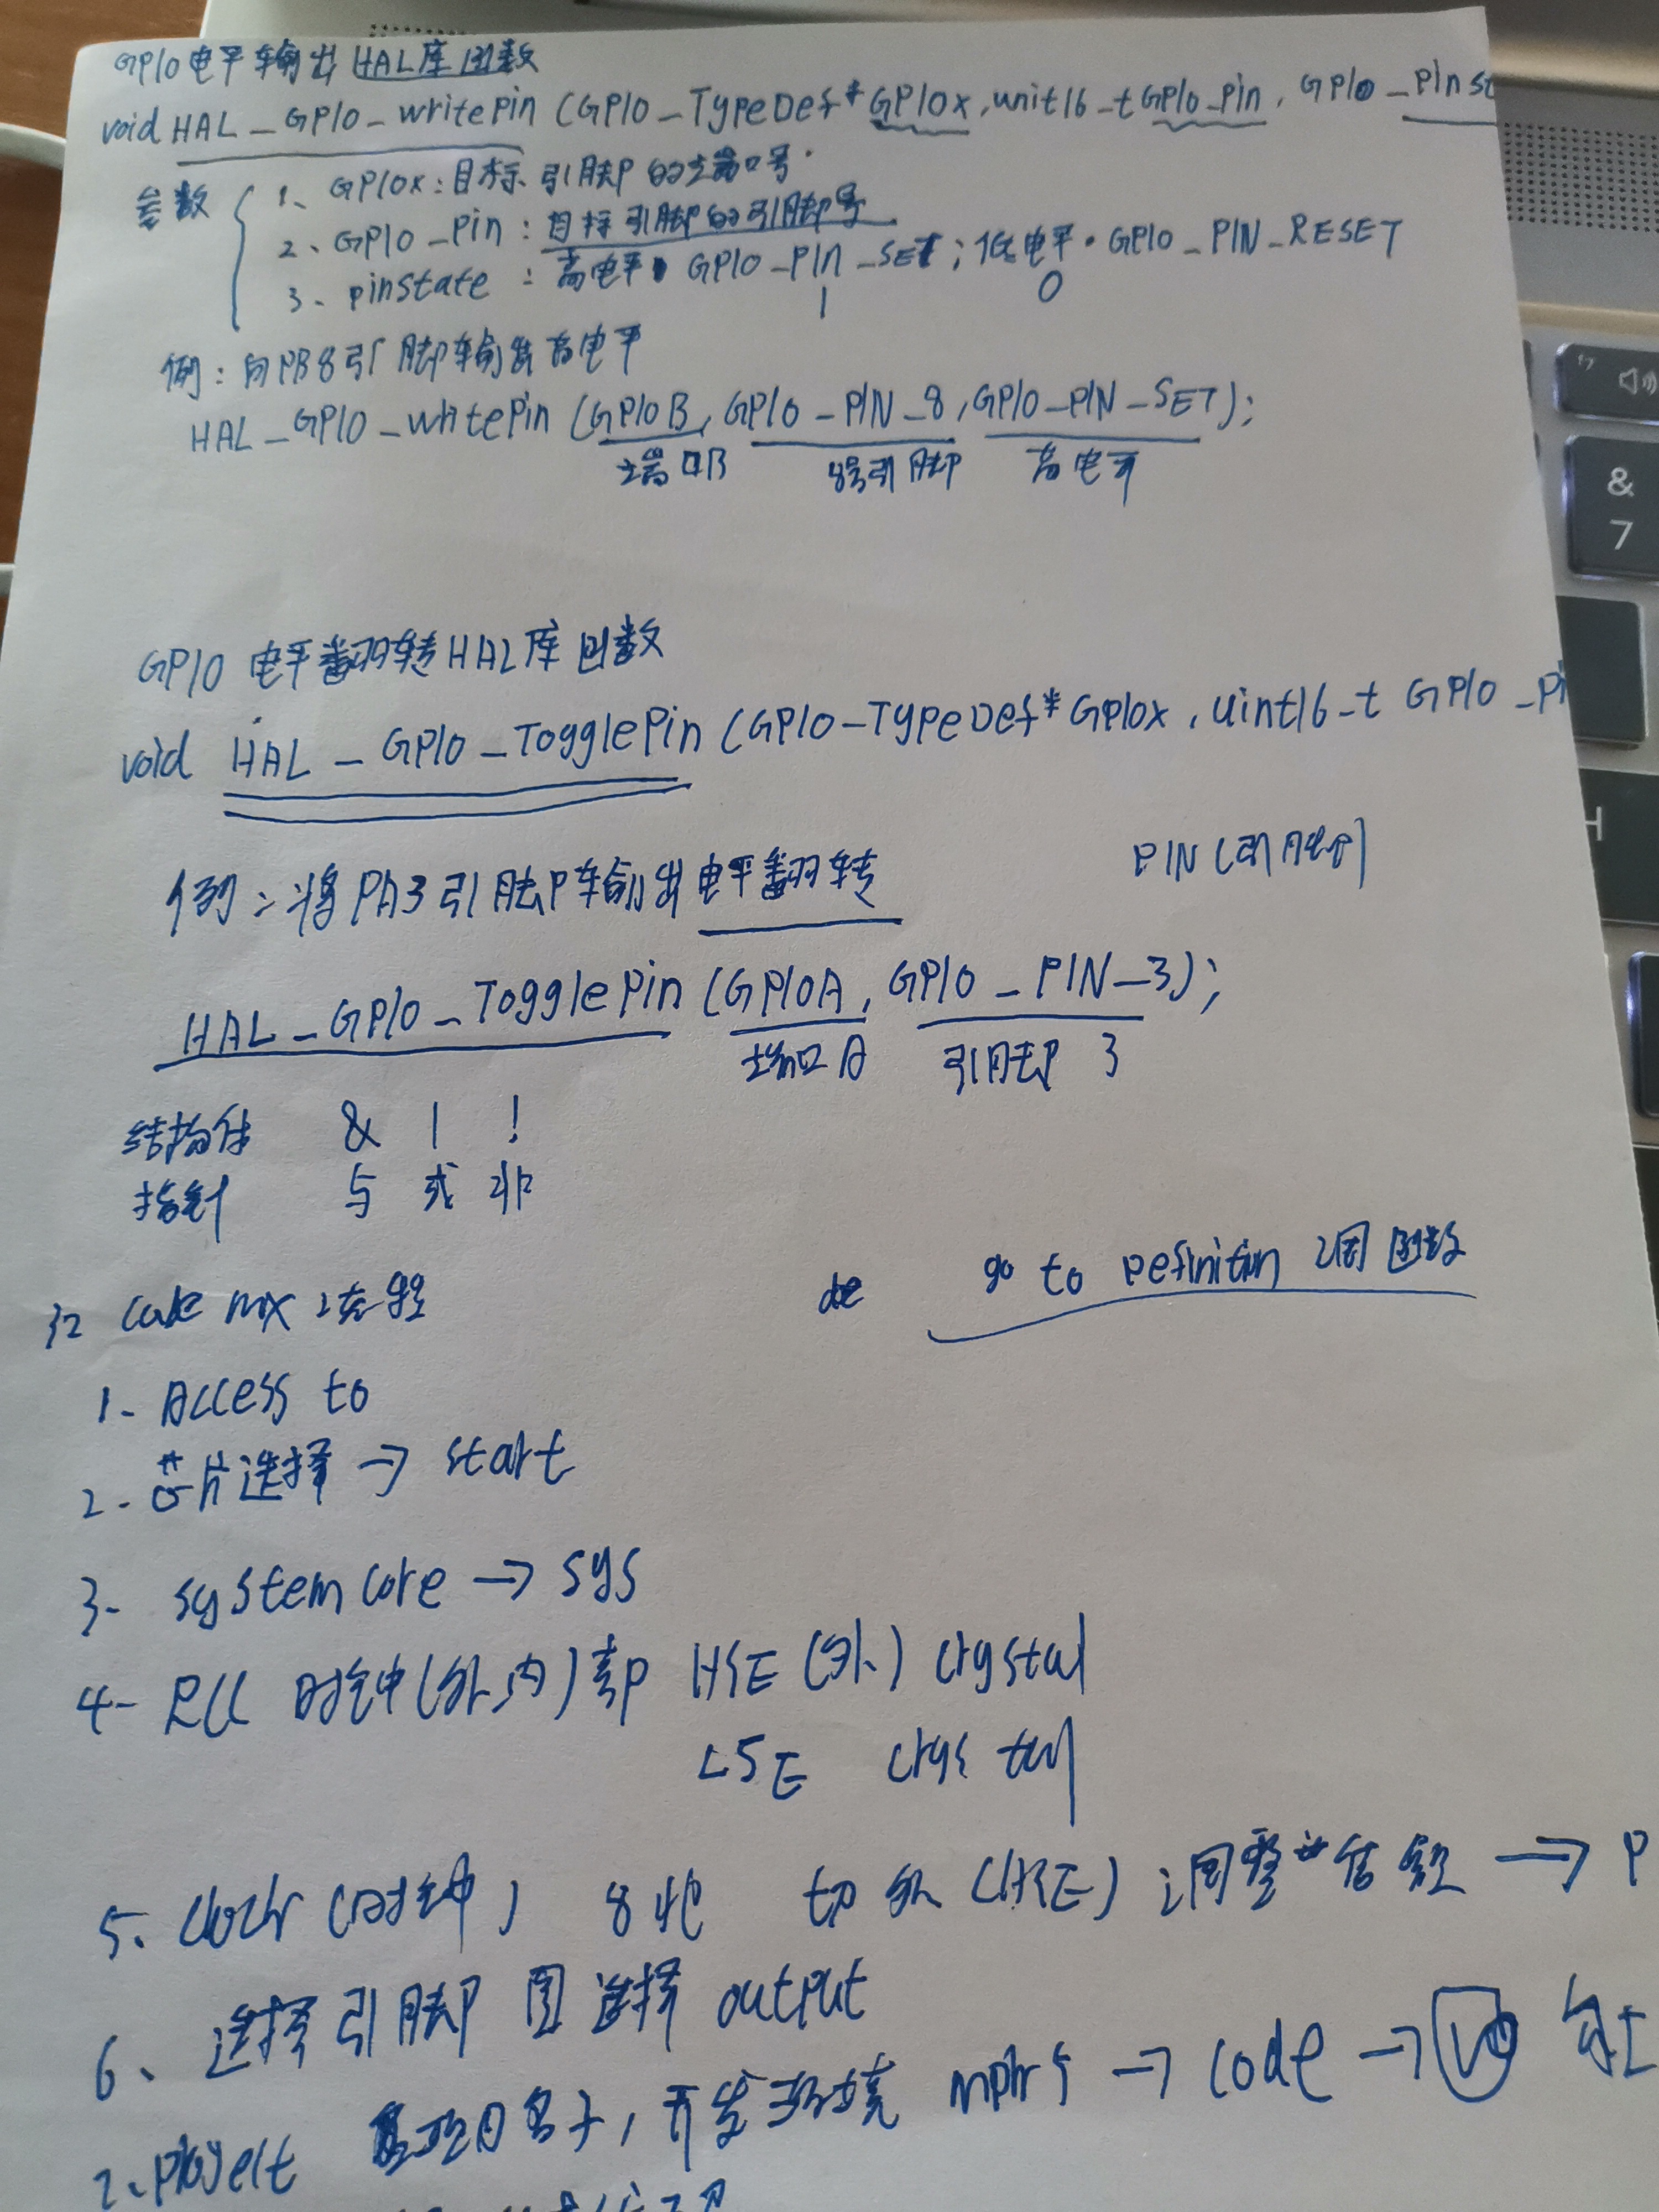 GPIO电平输出HAL库函数
void HAL_GPIO_writePin (GPIO_TypeDef* GPIOx, unit16_t GPIO_Pin, GPIO_Pinst
参数
1、GPIOx:目标引脚的端口号.
2、GPIO_Pin:目标引脚的引脚号
3、pinstate:高电平 GPIO_PIN_SET;低电平.GPIO_PIN_RESET
1 0
例:向PB8引脚输出高电平
HAL_GPIO_writePin (GPIOB, GPIO_PIN_8,GPIO_PIN_SET);
端口B 8号引脚 高电平
GPIO 电平翻转HAL库函数
void HAL_GPIO_TogglePin (GPIO_TypeDef* GPIOx, uint16_t GPIO_Pi
PIN(引脚)
例:将PA3引脚输出电平翻转
HAL_GPIO_TogglePin (GPIOA, GPIO_PIN_3);
端口A 引脚 3
结构体 & | !
指针 与 或 非
go to Definition 调函数
32 cube mx 流程
1- Access to
2-芯片选择→start
3- system core→sys
4- RCC 时钟(外,内)部 HSE(外) crystal
LSE crystal
5、clock(时钟) 切外(HSE) 调整 →P
6、选择引脚 图选择 output
project 项目名字,开发环境 → code →
& 7